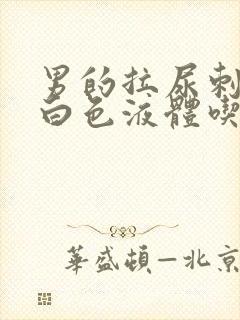 男的拉尿刺
白色液體喫
華盛頓—北京